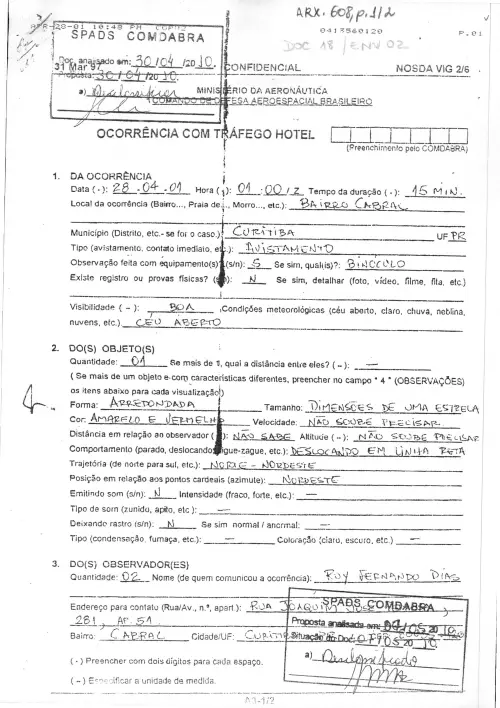 ARX. 608, p.1/2
APR-28-01 10:49 PM
0413560120
P.01
SPADS COMDABRA
DOC 18 / ENV 02
Doc. analisado em: 30/04/2010.
31 Mar 97
CONFIDENCIAL
NOSDA VIG 2/6
Proposta: 30/04/2010.
a) Desclassificar
MINISTÉRIO DA AERONÁUTICA
COMANDO DE DEFESA AEROESPACIAL BRASILEIRO
OCORRÊNCIA COM TRÁFEGO HOTEL
(Preenchimento pelo COMDABRA)
1. DA OCORRÊNCIA
Data (-): 28-04-01 Hora (-): 01:00/2 Tempo da duração (-): 15 MIN.
Local da ocorrência (Bairro..., Praia de..., Morro..., etc.): BAIRRO CABRAL
Município (Distrito, etc.- se for o caso): CURITIBA UF PR
Tipo (avistamento, contato imediato, etc.): AVISTAMENTO
Observação feita com equipamento(s) (s/n): S Se sim, qual(is)?: BINÓCULO
Existe registro ou provas físicas? (s/n): N Se sim, detalhar (foto, vídeo, filme, fita, etc.)
Visibilidade (-): BOA ,Condições meteorológicas (céu aberto, claro, chuva, neblina,
nuvens, etc.) CEU ABERTO
2. DO(S) OBJETO(S)
Quantidade: 01 Se mais de 1, qual a distância entre eles? (-): —
( Se mais de um objeto e com características diferentes, preencher no campo "4" (OBSERVAÇÕES)
os itens abaixo para cada visualização)
Forma: ARREDONDADA Tamanho: DIMENSÕES DE UMA ESTRELA
Cor: AMARELO E VERMELHO Velocidade: NÃO SOUBE PRECISAR
Distância em relação ao observador (-): NÃO SABE Altitude (-): NÃO SOUBE PRECISAR
Comportamento (parado, deslocando zigue-zague, etc.): DESLOCANDO EM LINHA RETA
Trajetória (de norte para sul, etc.): NORTE - NORDESTE
Posição em relação aos pontos cardeais (azimute): NORDESTE
Emitindo som (s/n): N Intensidade (fraco, forte, etc.): —
Tipo de som (zunido, apito, etc.): —
Deixando rastro (s/n): N Se sim normal / anormal: —
Tipo (condensação, fumaça, etc.): — Coloração (claro, escuro, etc.) —
3. DO(S) OBSERVADOR(ES)
Quantidade: 02 Nome (de quem comunicou a ocorrência): RUY FERNANDO DIAS
Endereço para contatu (Rua/Av., n.º, apart.): RUA JOAQUIM
281, AP. 51
Bairro: CABRAL Cidade/UF: CURITI
SPADS COMDABRA
Proposta analisada em: 07/05/2010
Situação do Doc: 07/05/2010.
a) Desclassificado
(-) Preencher com dois dígitos para cada espaço.
(~) Especificar a unidade de medida.
A-1-1/2